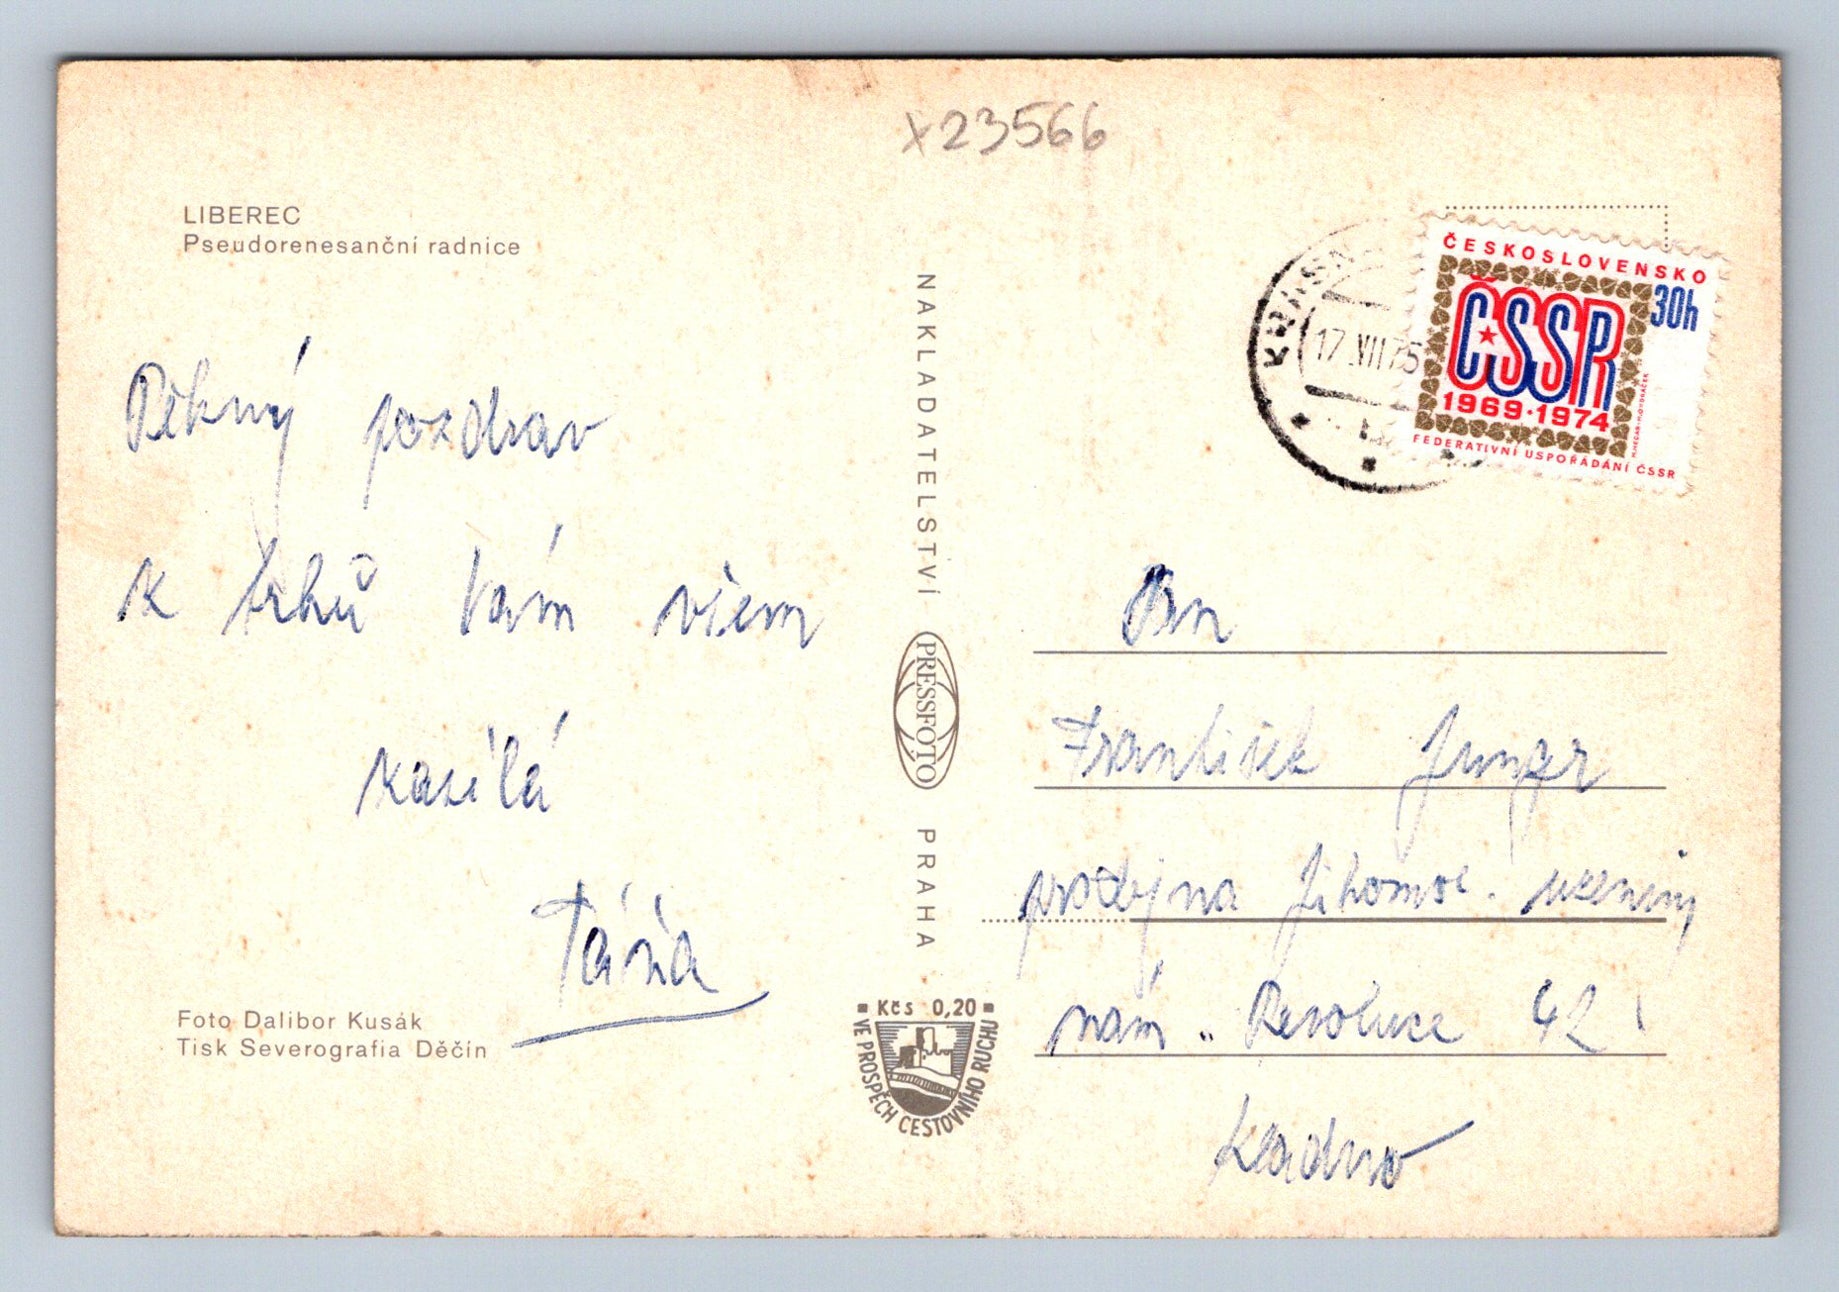 x23566
LIBEREC
Pseudorenesanční radnice
Pěkný pozdrav
k Vám všem
Táňa
Foto Dalibor Kusák
Tisk Severografia Děčín
NAKLADATELSTVÍ PRESSFOTO PRAHA
Kčs 0,20
VE PROSPĚCH CESTOVNÍHO RUCHU
17.VII.75
ČESKOSLOVENSKO
30h
ČSSR
1969·1974
FEDERATIVNÍ USPOŘÁDÁNÍ ČSSR
Pan
František
prodejna Jihomor. uzeniny
nám. Revoluce 42
Kladno